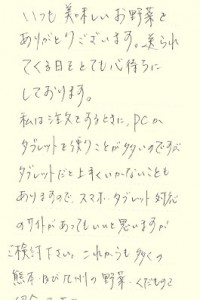 いつも美味しいお野菜を
ありがとうございます。送られ
てくる日をとても心待ちに
しております。
私は注文をするときに、PCか
タブレットを使うことが多いのですが
タブレットだと上手くいかないことも
ありますので、スマホ・タブレット対応
のサイトがあってもいいと思いますが
ご検討下さい。これからも多くの
熊本及び九州の野菜・くだものを